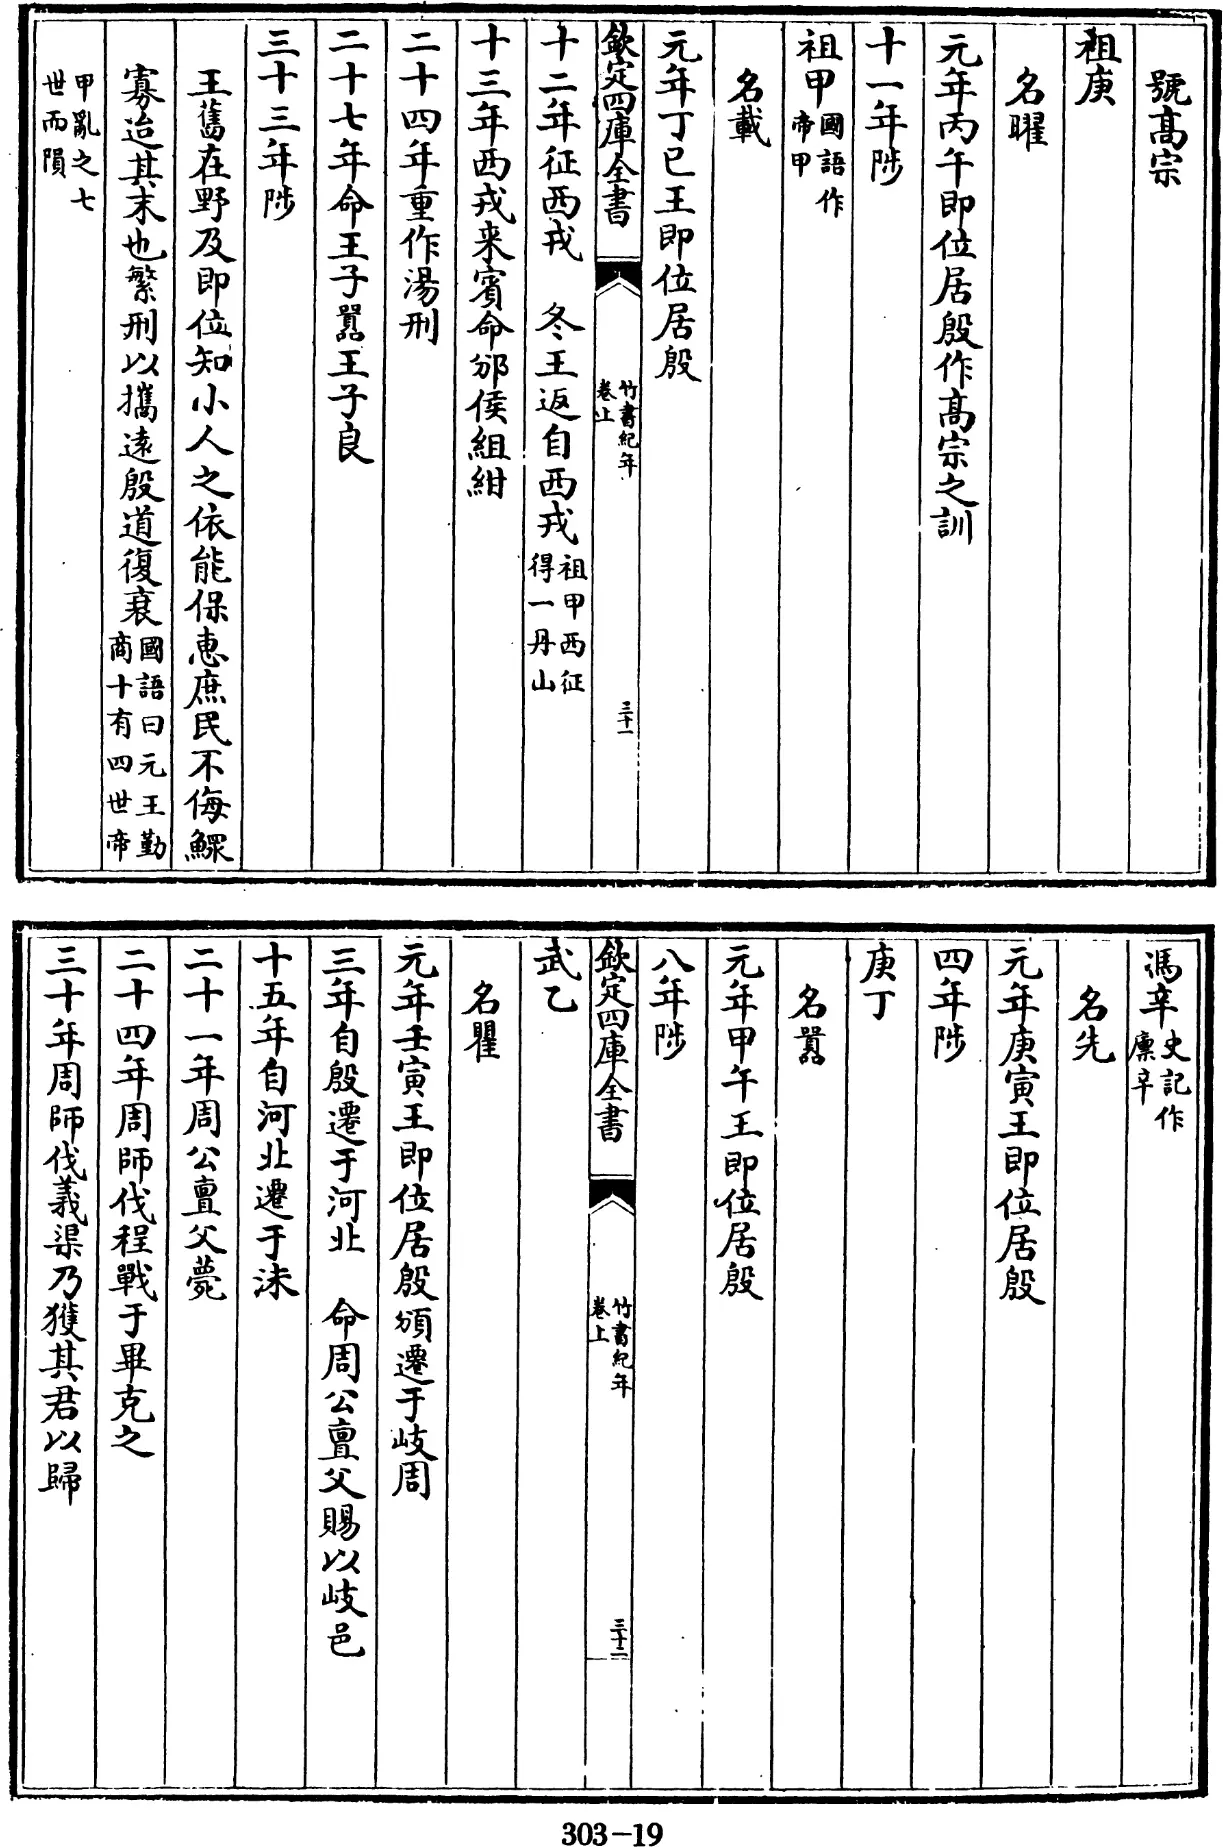 號髙宗
祖庚
名曜
元年丙午即位居殷作髙宗之訓
十一年陟
祖甲國語作帝甲
名載
元年丁巳王即位居殷
欽定四庫全書
竹書紀年卷上
三十一
十二年征西戎　冬王返自西戎祖甲西征得一丹山
十三年西戎來賓命邠侯組紺
二十四年重作湯刑
二十七年命王子嚚王子良
三十三年陟
王舊在野及即位知小人之依能保惠庶民不侮鰥
寡迨其末也繁刑以攜逺殷道復衰國語曰元王勤商十有四世帝
甲亂之七世而隕
馮辛史記作廪辛
名先
元年庚寅王即位居殷
四年陟
庚丁
名嚚
元年甲午王即位居殷
八年陟
欽定四庫全書
竹書紀年卷上
三十二
武乙
名瞿
元年壬寅王即位居殷頒遷于岐周
三年自殷遷于河北　命周公亶父賜以岐邑
十五年自河北遷于沬
二十一年周公亶父薨
二十四年周師伐程戰于畢克之
三十年周師伐義渠乃獲其君以歸
303-19